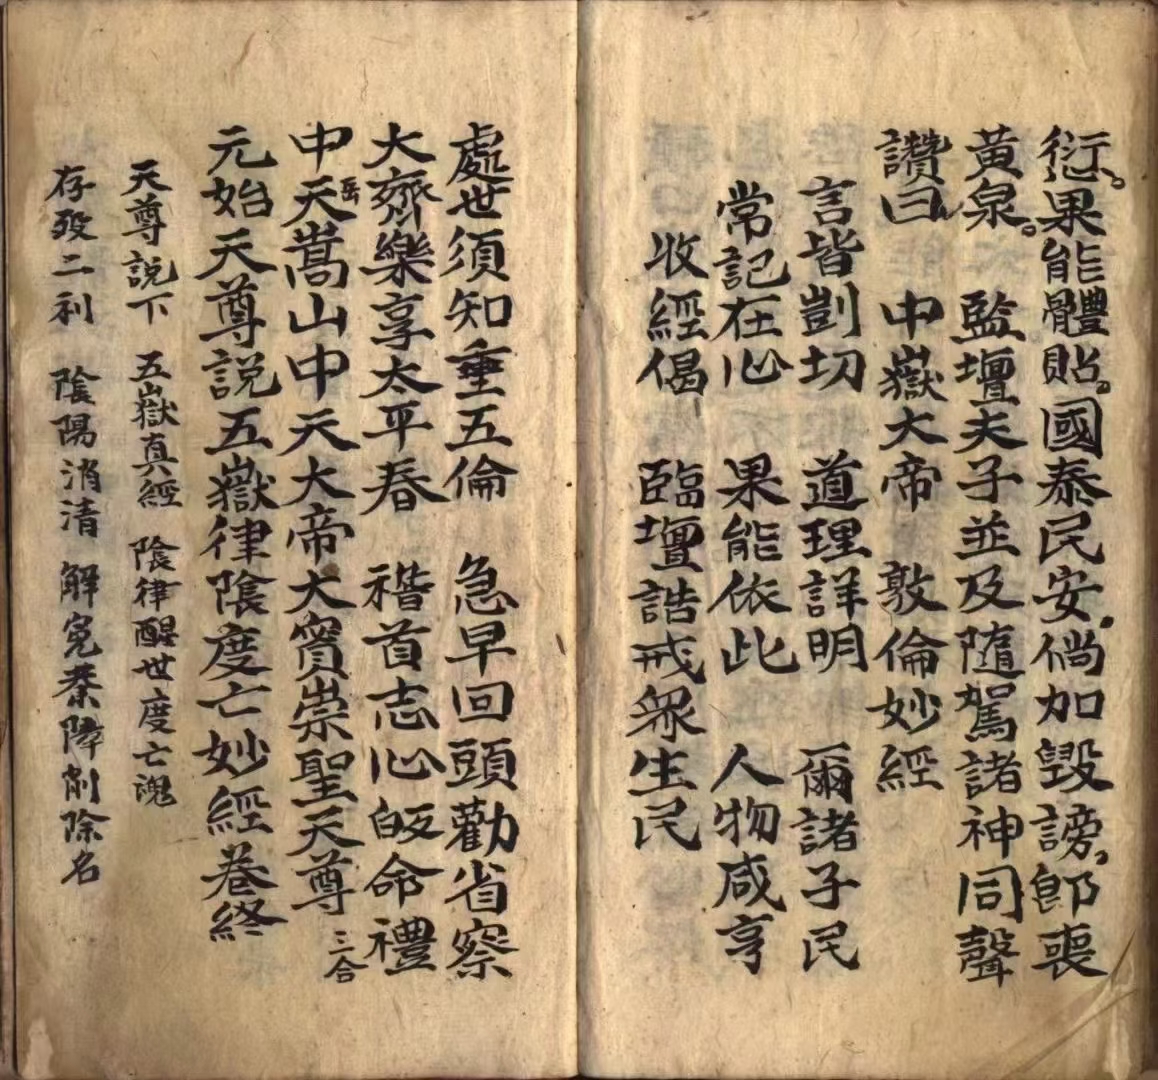 衍。果能體貼。國泰民安，倘加毀謗，即喪
黃泉。監壇夫子並及隨駕諸神同聲
讚曰 中嶽大帝 敦倫妙經
言皆剴切 道理詳明 爾諸子民
常記在心 果能依此 人物咸亨
收經偈 臨壇誥戒眾生民
處世須知重五倫 急早回頭勸省察
大齊樂享太平春 稽首志心皈命禮
中天嵩山中天大帝大寳崇聖天尊 三合
岳
元始天尊説五嶽律陰度亡妙經卷終
天尊説下 五嶽真經 陰律醒世度亡魂
存殁二利 陰陽消清 解冤秦障削除名